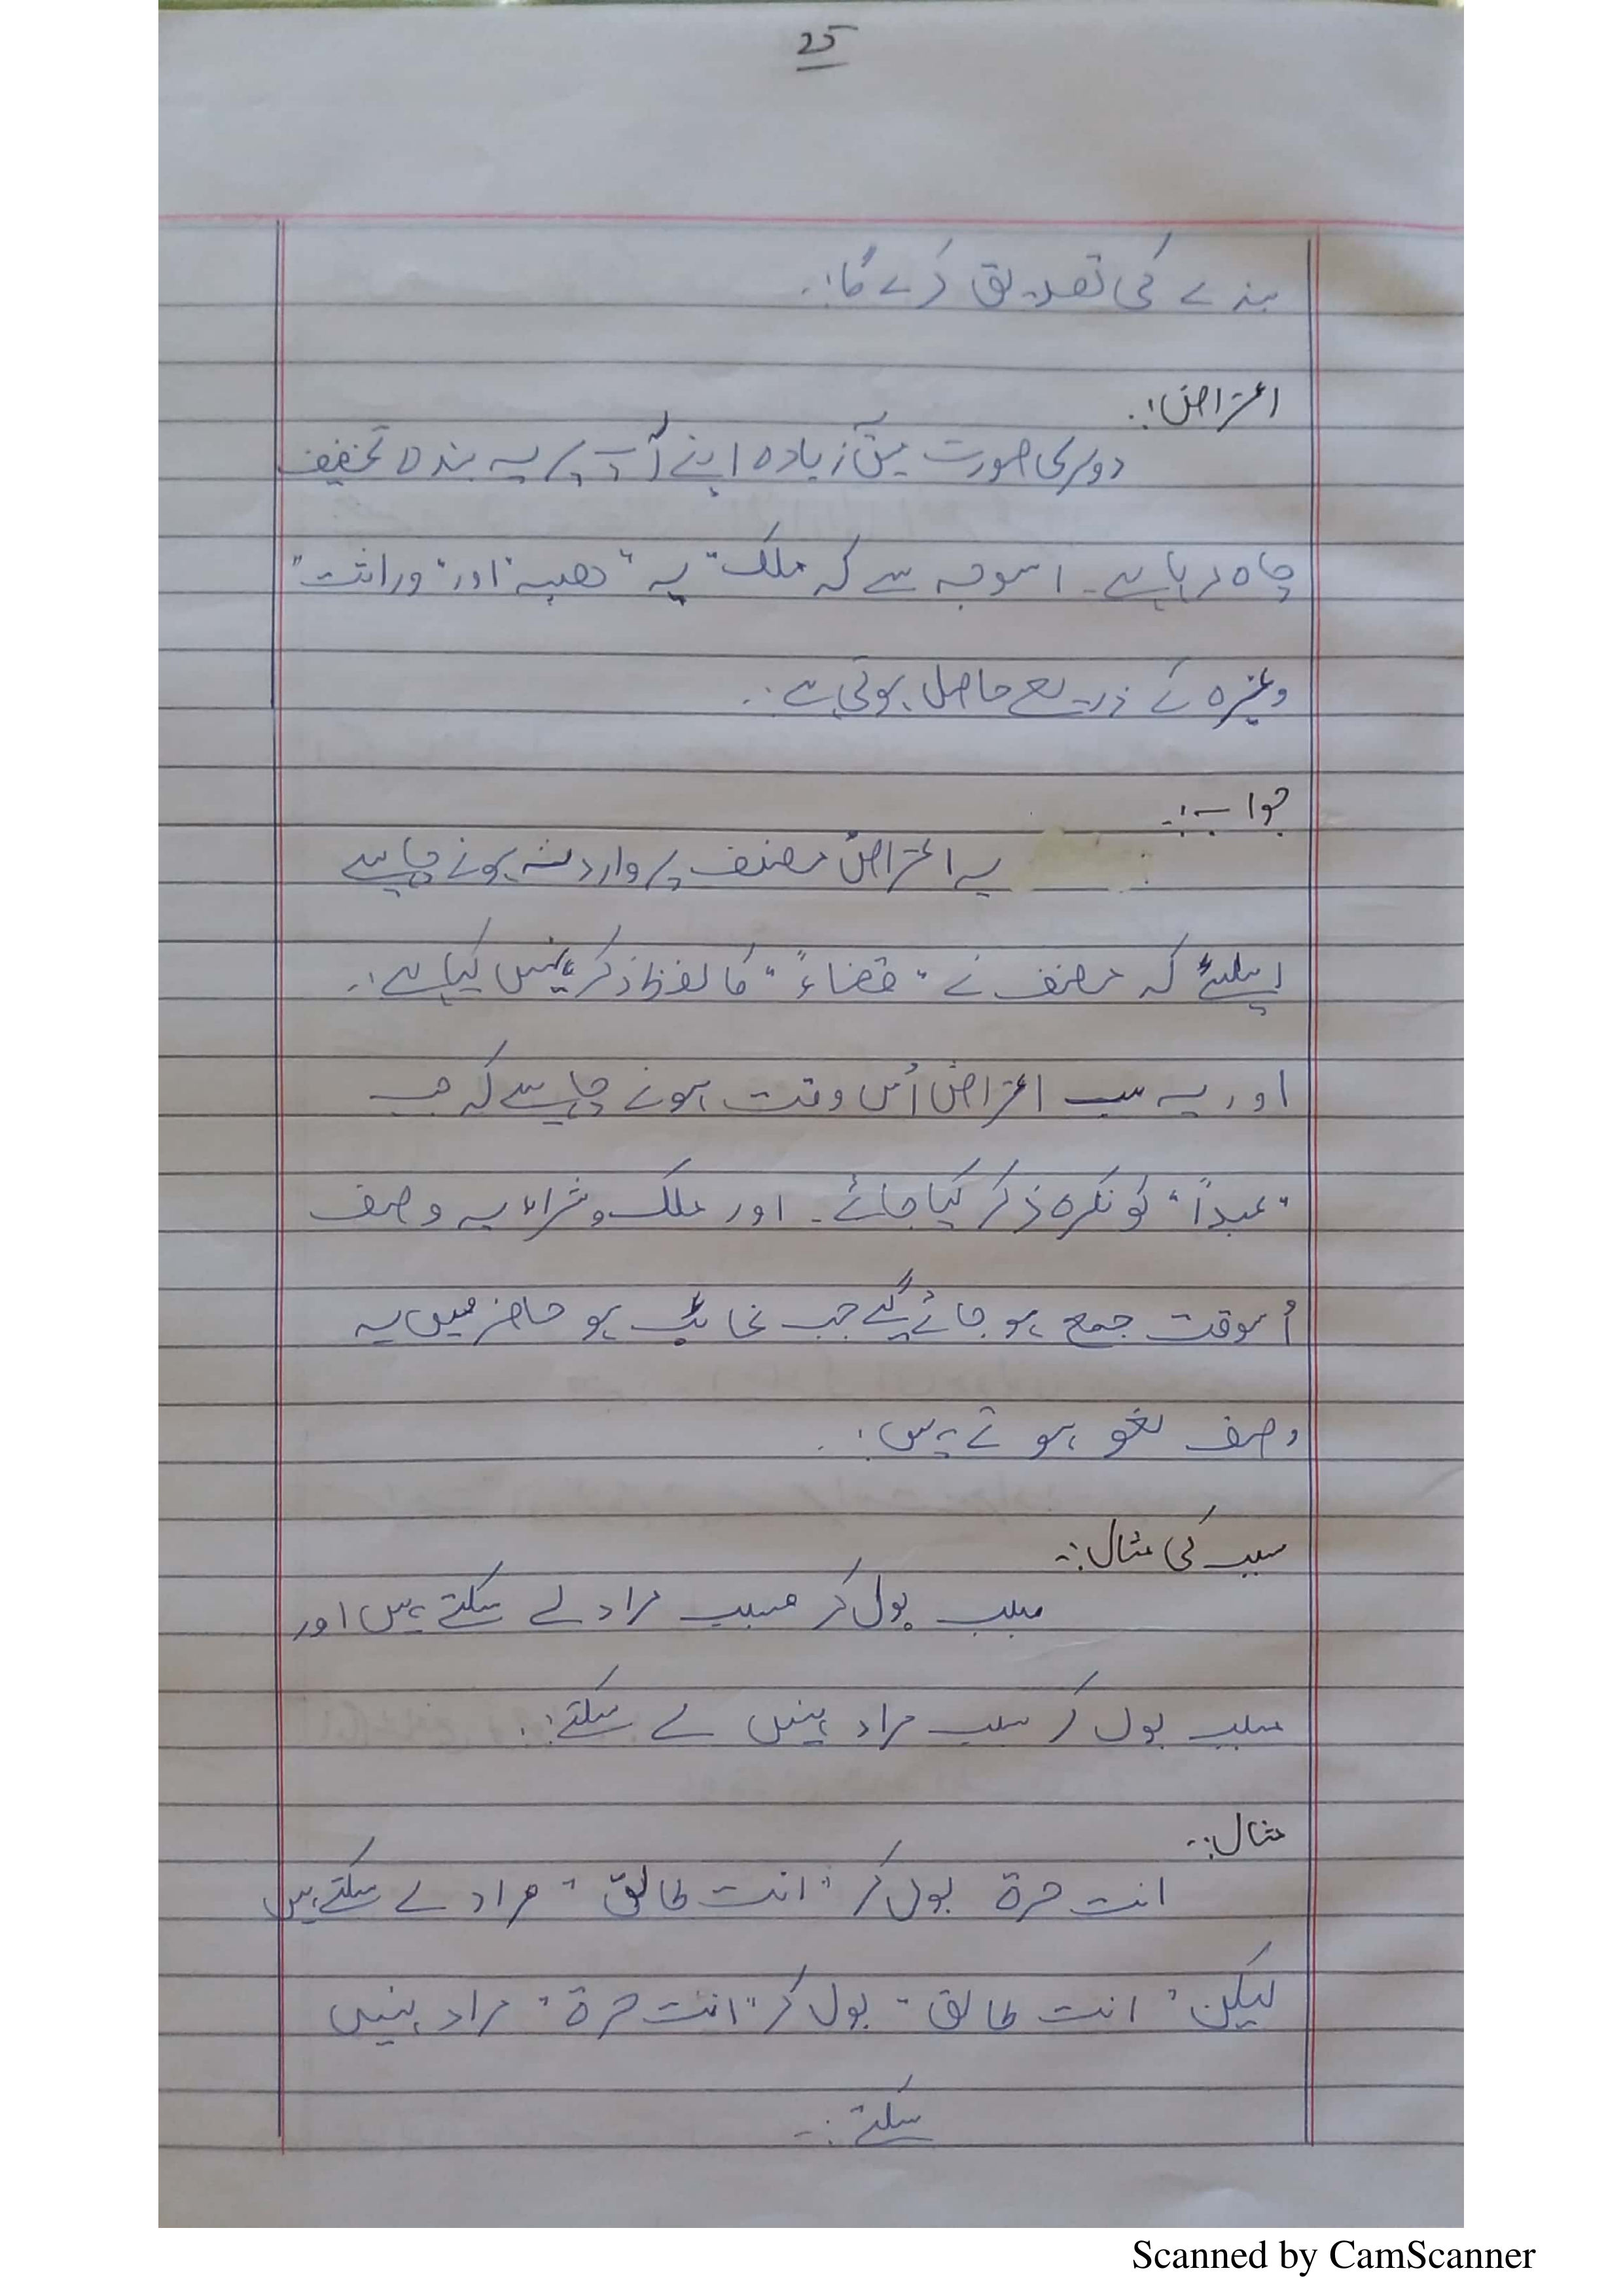 25
بندے کی تصدیق کرے گا:۔
اعتراض:۔
دوسری صورت میں زیادہ اپنے آپ پر یہ بندہ تخفیف
چاہ رہا ہے۔ اسوجہ سے کہ ملک" یہ "ھبہ" اور" وراثت"
وغیرہ کے ذریعے حاصل ہوتی ہے:۔
جواب:۔
یہ اعتراض مصنف پر وارد نہ ہونے چاہیے
اسلئے کہ مصنف نے "قضاءً" کا لفظ ذکر نہیں کیا ہے:۔
اور یہ سب اعتراض اُس وقت ہونے چاہیے کہ جب
"عبداً" کو نکرہ ذکر کیا جائے۔ اور ملک و شراء یہ وصف
اُسوقت جمع ہو جائے گے جب غائب ہو حاضر میں یہ
وصف لغو ہوتے ہیں:۔
سبب کی مثال:۔
سبب بول کر مسبب مراد لے سکتے ہیں اور
مسبب بول کر سبب مراد نہیں لے سکتے:۔
مثال:۔
انت حرۃ بول کر "انت طالق" مراد لے سکتے ہیں
لیکن "انت طالق" بول کر "انت حرۃ" مراد نہیں
سکتے:۔
Scanned by CamScanner